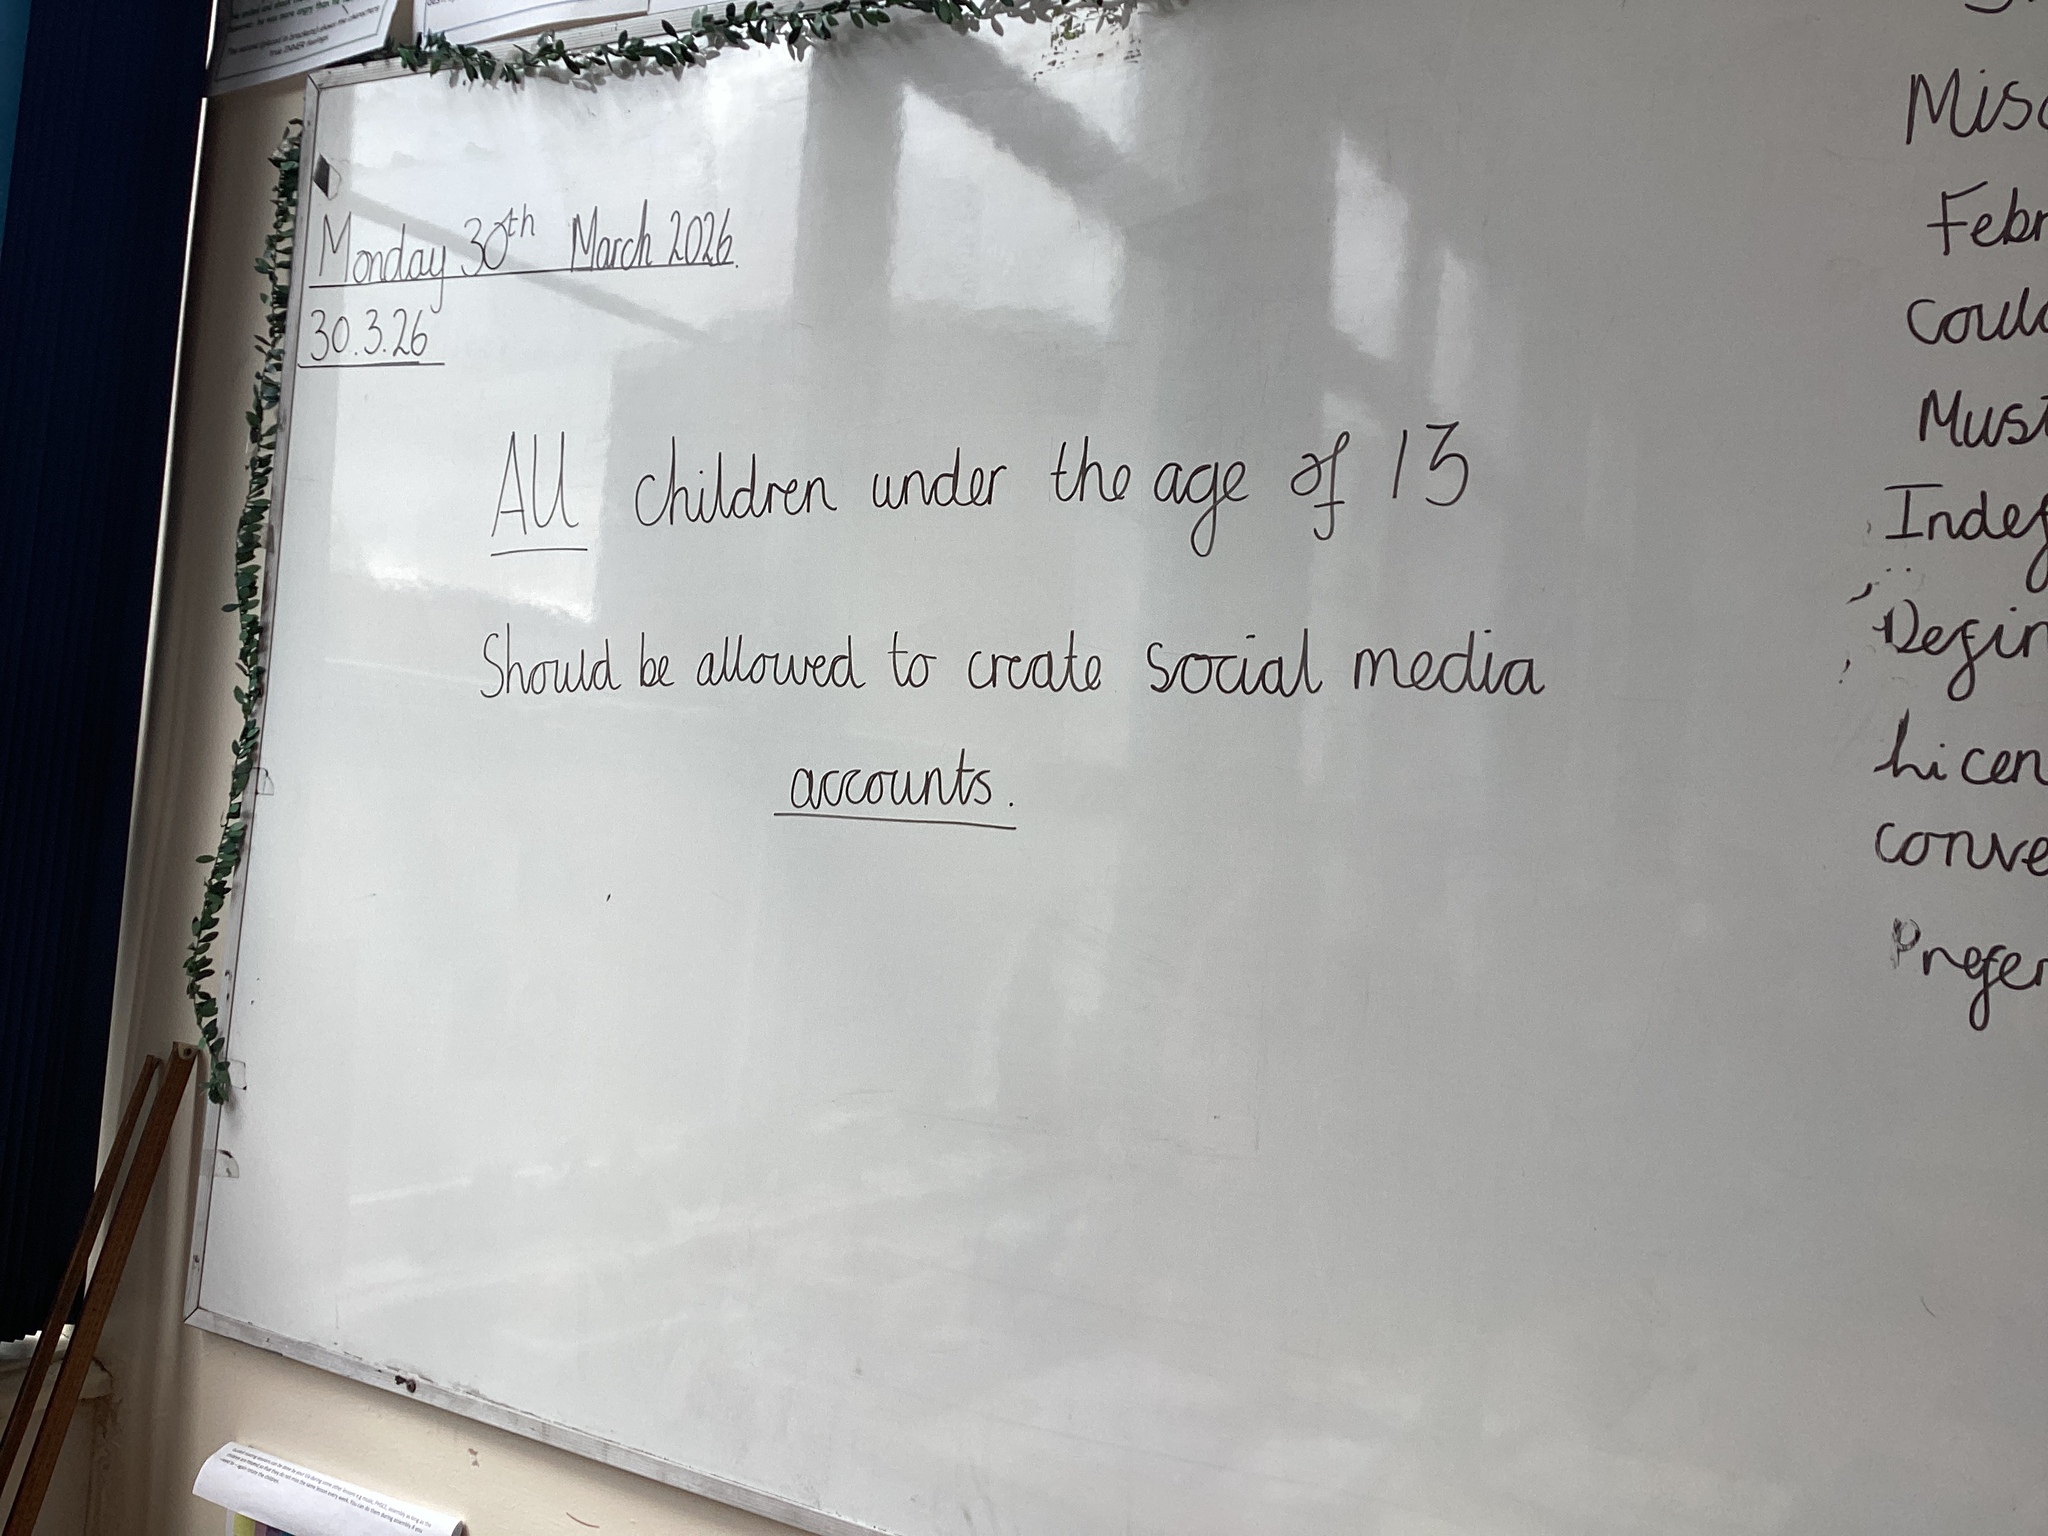 true INNER feelings
Monday 30th March 2026.
30.3.26
All children under the age of 13
Should be allowed to create social media
accounts.
Misc
Febr
Could
Must
Indef
Defin
Licen
conve
Prefer